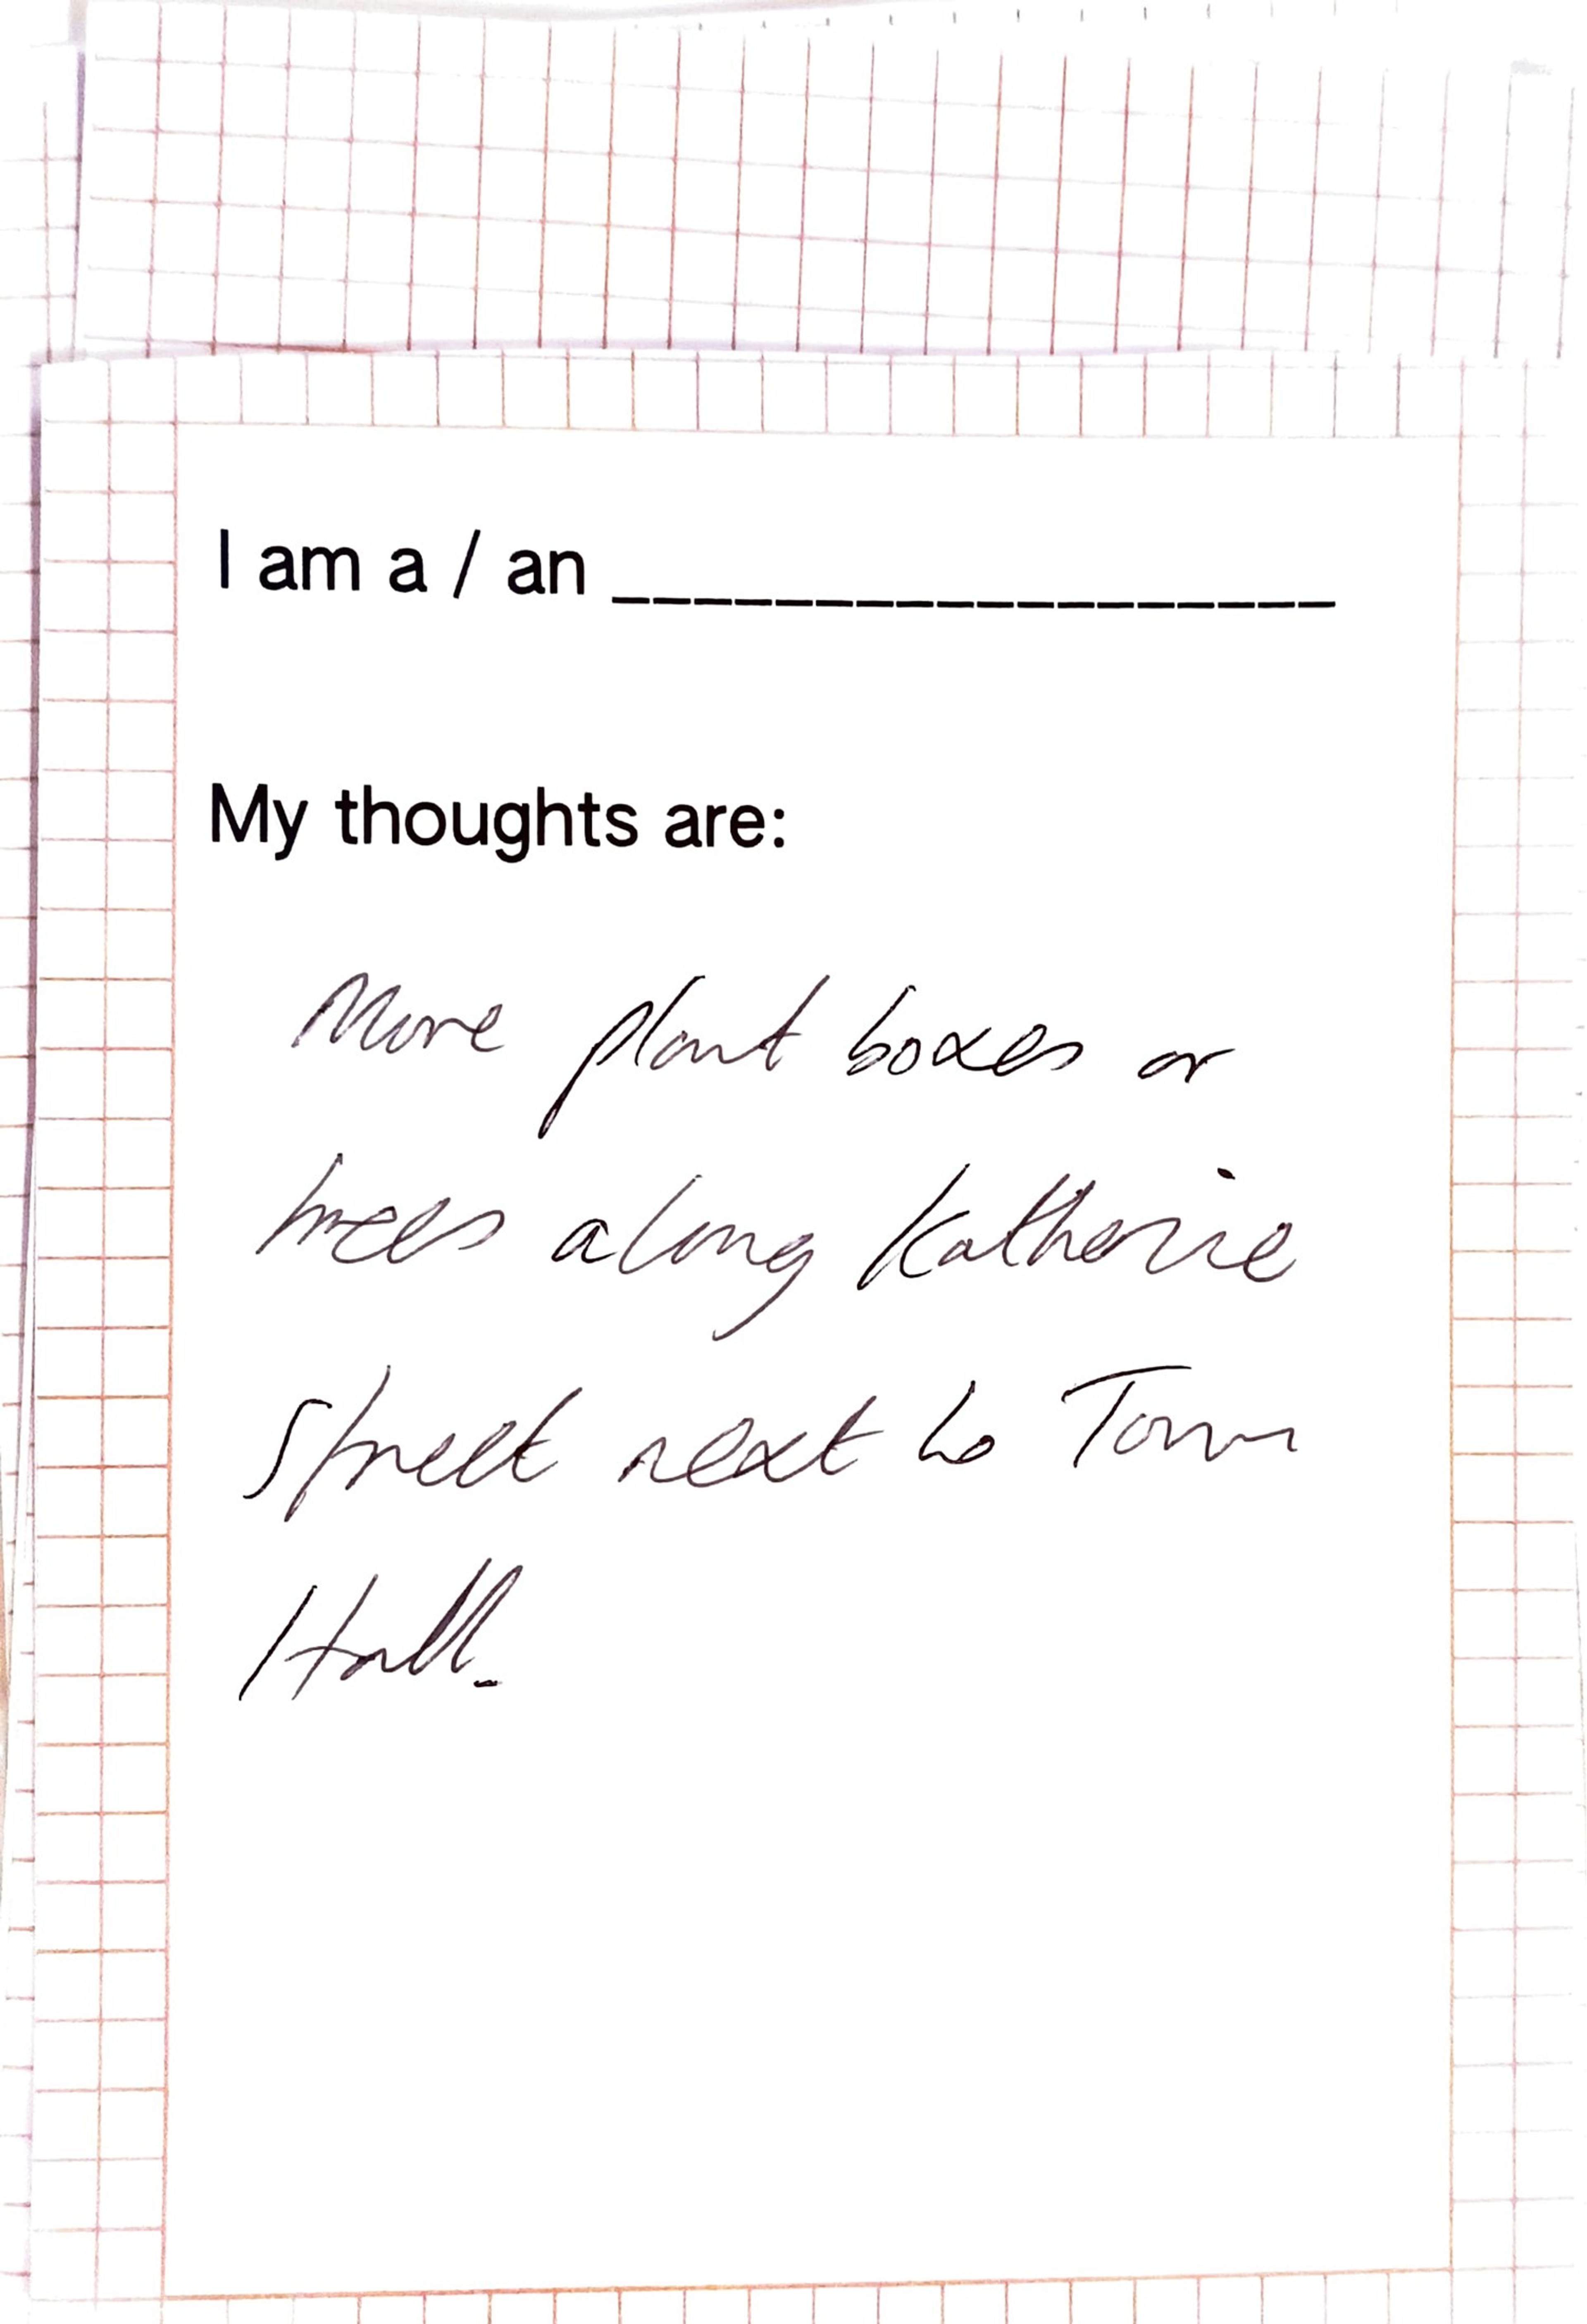 I am a / an __________________
My thoughts are:
More plant boxes or
trees along Katherine
Street next to Town
Hall.